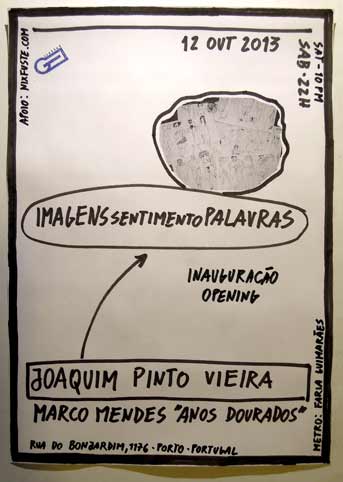 APOIO: MIXFUSTE.COM
12 OUT 2013
SAT-10PM
SAB-22H
IMAGENSSENTIMENTOPALAVRAS
INAUGURAÇÃO
OPENING
JOAQUIM PINTO VIEIRA
MARCO MENDES "ANOS DOURADOS"
RUA DO BONJARDIM, 1176 - PORTO - PORTUGAL
METRO: FARIA GUIMARÃES